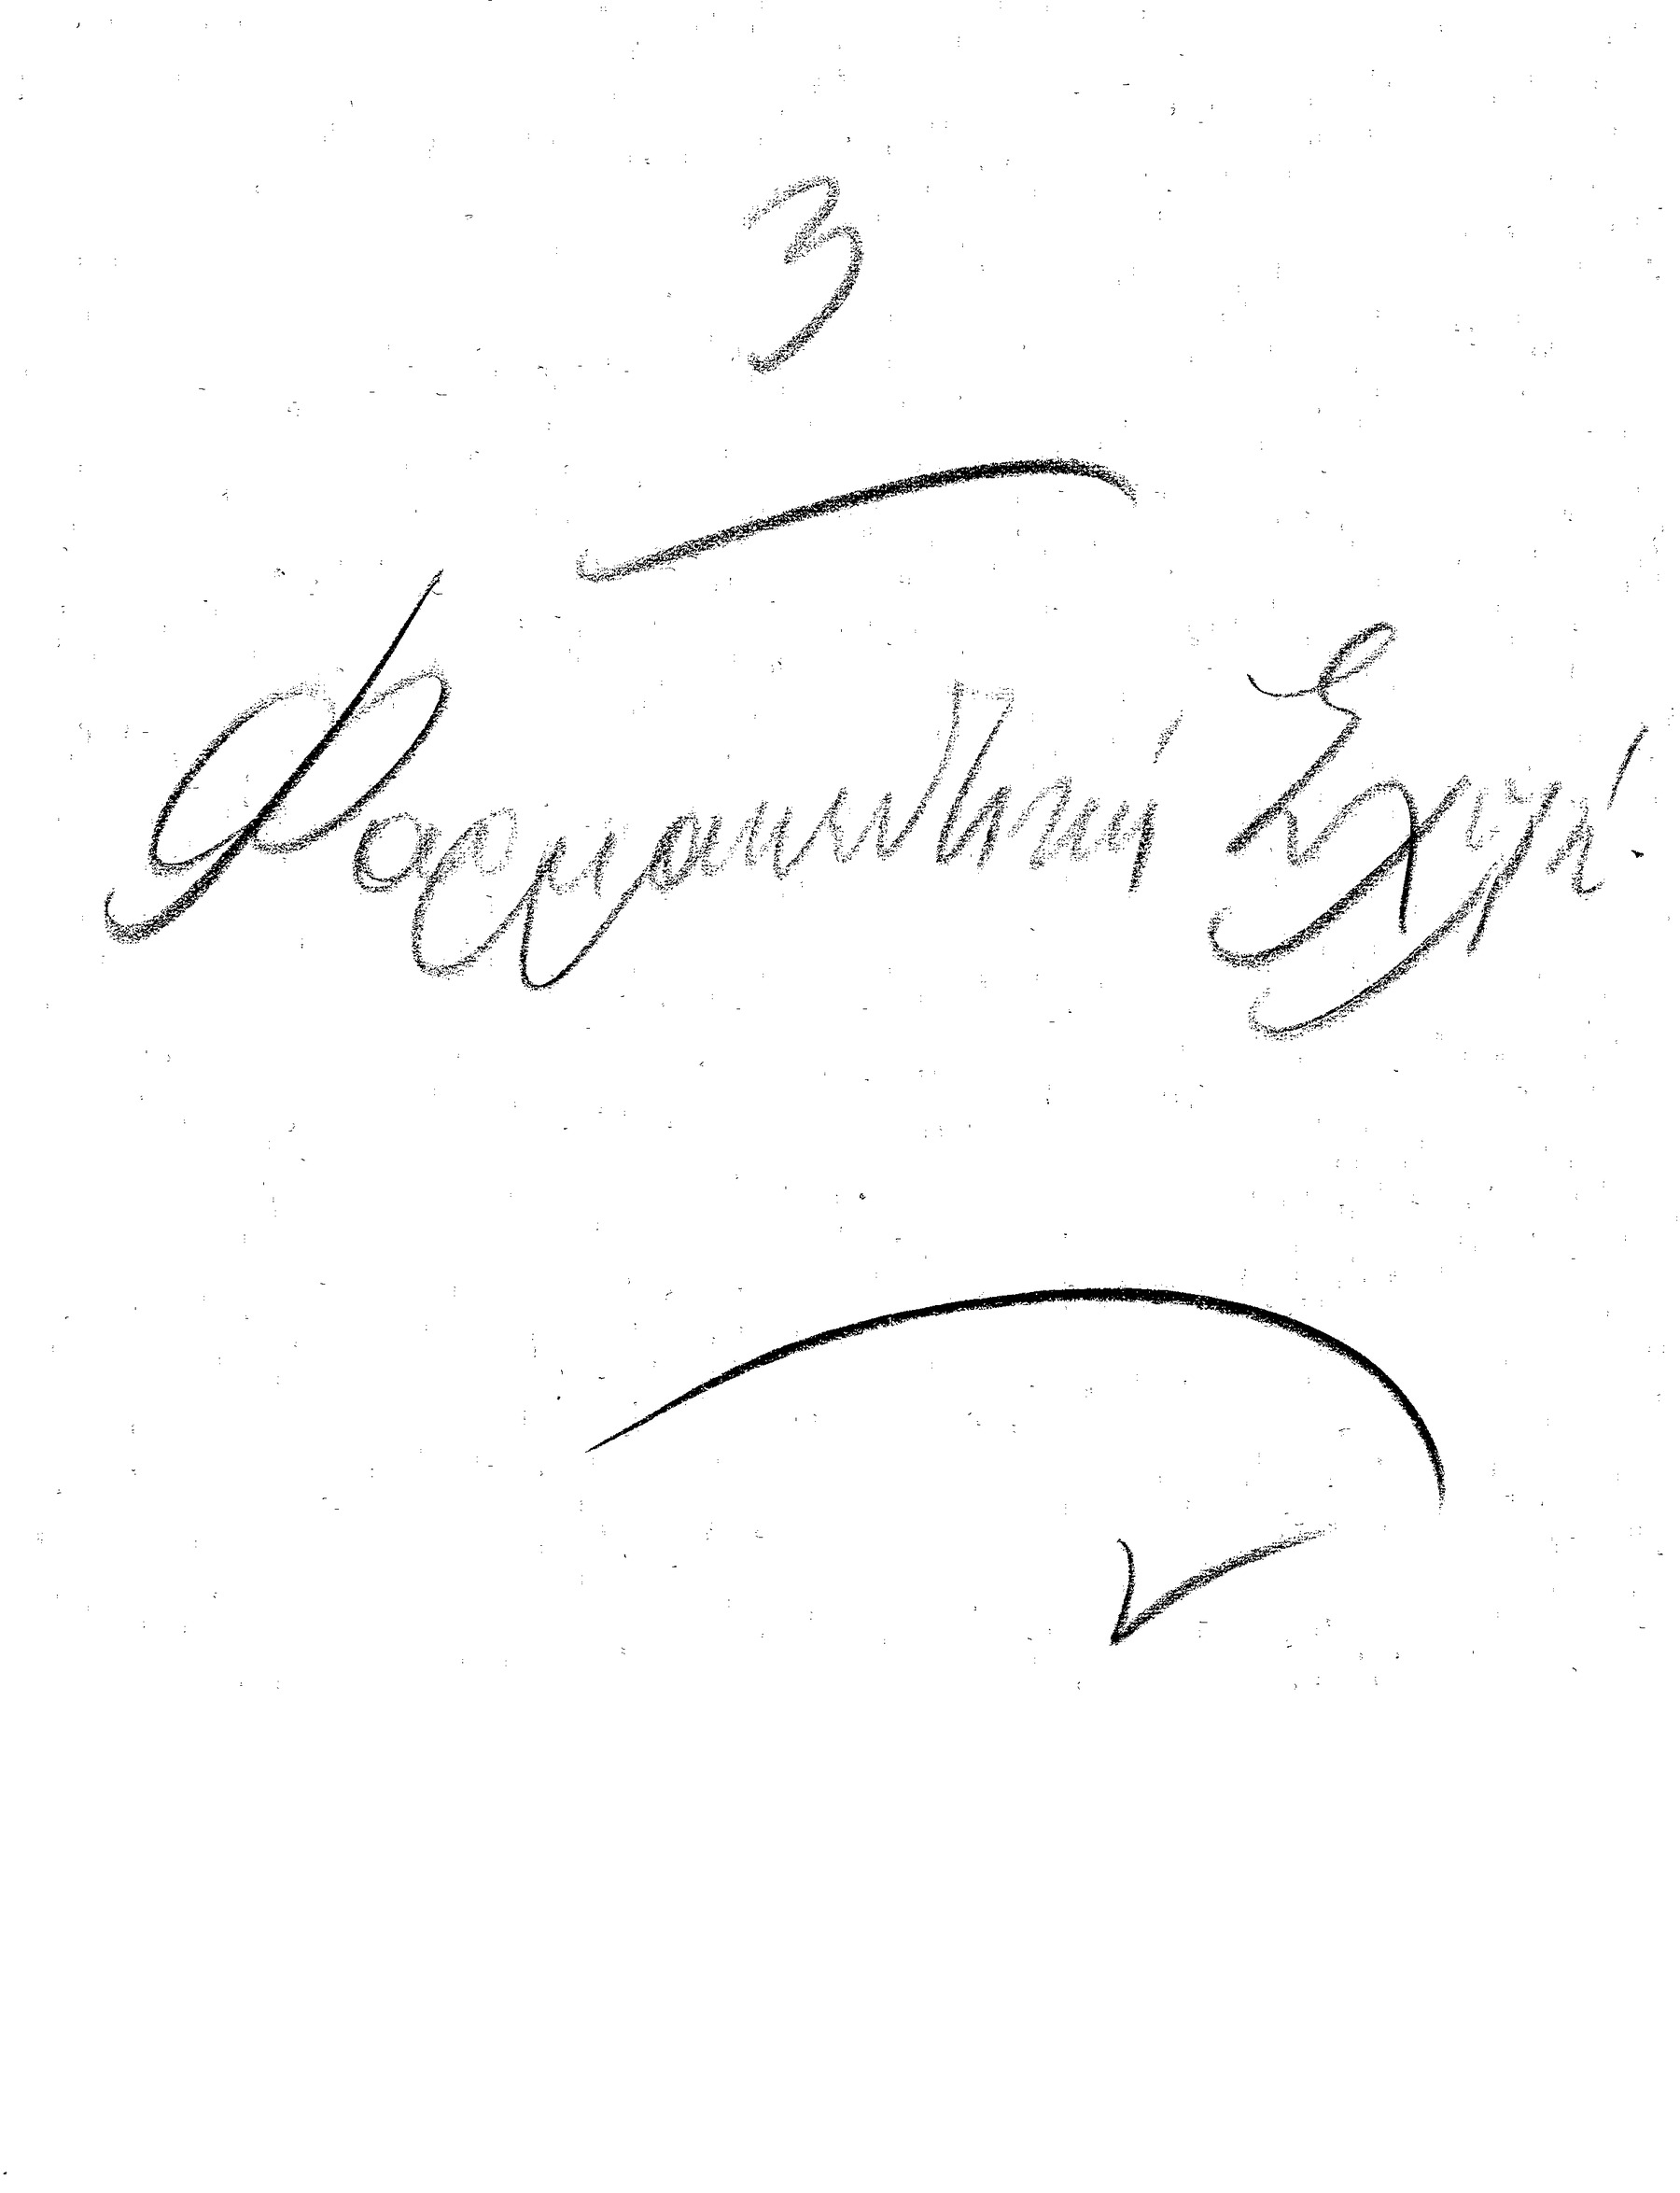 3
Φαρμακευτική Σχολή.